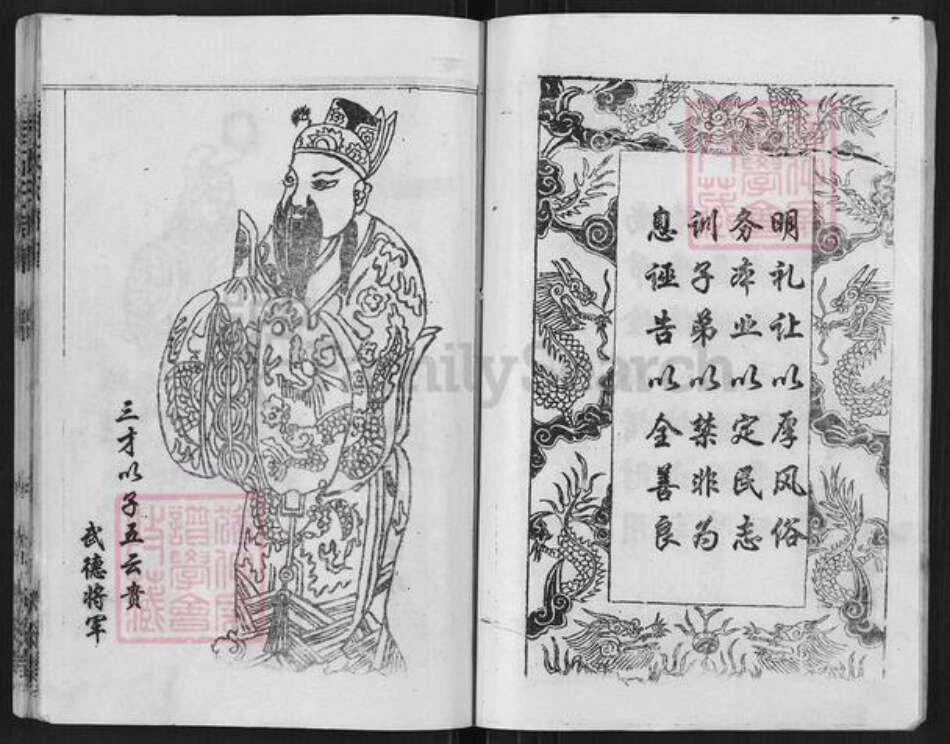 明礼让以厚风俗
务本业以定民志
训子弟以禁非为
息诬告以全善良
三才以子五云贵
武德将军
FamilySearch